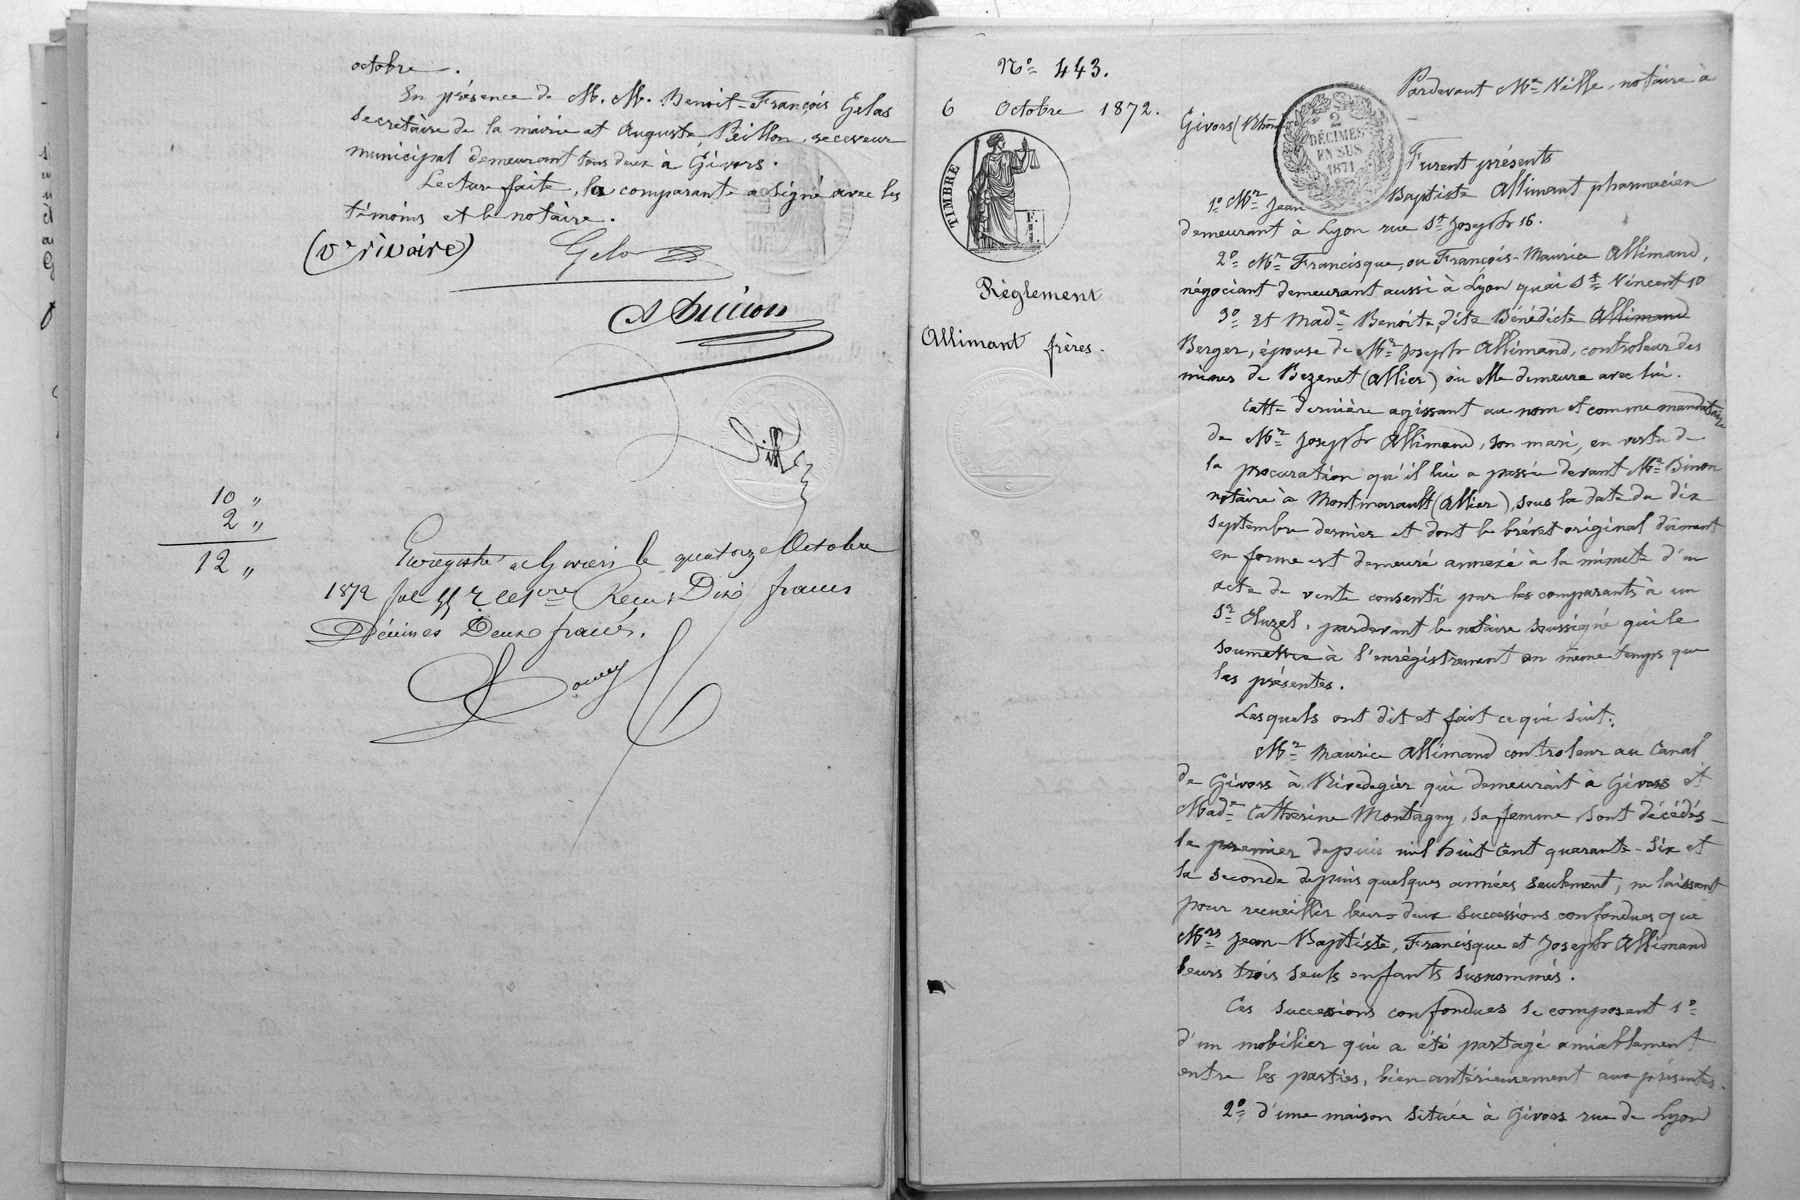 octobre.
En présence de M. M. Benoit-François Gelas
Secrétaire de la mairie et Auguste Peillon, receveur
municipal demeurant tous deux à Givors.
Lecture faite, la comparante a signé avec les
témoins et le notaire.
(Ve rivoire)
Gelas
10 "
2 "
12 "
Enregistré à Givors le quatorze Octobre
1872 Reçu Dix francs
Décimes Deux francs.
No 443.
6 Octobre 1872.
TIMBRE
Règlement
Allimant frères.
2
DÉCIMES
EN SUS
1871
Pardevant Me Ville, notaire à
Givors (Rhône
Furent présents
1o Mr Jean Baptiste Allimant pharmacien
demeurant à Lyon rue St Joseph 16.
2o Mr Francisque, ou François-Maurice Allimand,
négociant demeurant aussi à Lyon quai St Vincent 10
3o Et Made Benoite dite Bénédicte Allimand
Berger, épouse de Mr Joseph Allimand, controleur des
mines de Bezenet (Allier) où elle demeure avec lui.
Cette dernière agissant au nom et comme mandataire
de Mr Joseph Allimand, son mari, en vertu de
la procuration qu'il lui a passée devant Me Binon
notaire à Montmarault (Allier), sous la date du dix
septembre dernier et dont le brévet original dûment
en forme est demeuré annexé à la minute d'un
acte de vente consenti par les comparants à un
Sr Cluzel, pardevant le notaire soussigné qui le
soumettra à l'enrégistrement en même temps que
les présentes.
Lesquels ont dit et fait ce qui suit:
Mr Maurice Allimand controleur au Canal
de Givors à Rivedegier qui demeurait à Givors et
Made Catherine Montagny, sa femme, sont décédés
le premier depuis mil huit cent quarante-six et
la seconde depuis quelques années seulement, ne laissant
pour recueillir leurs deux successions confondues que
Mrs Jean-Baptiste, Francisque et Joseph Allimand
leurs trois seuls enfants susnommés.
Ces successions confondues se composent 1o
d'un mobilier qui a été partagé amiablement
entre les parties, bien antérieurement aux présentes.
2o d'une maison située à Givors rue de Lyon